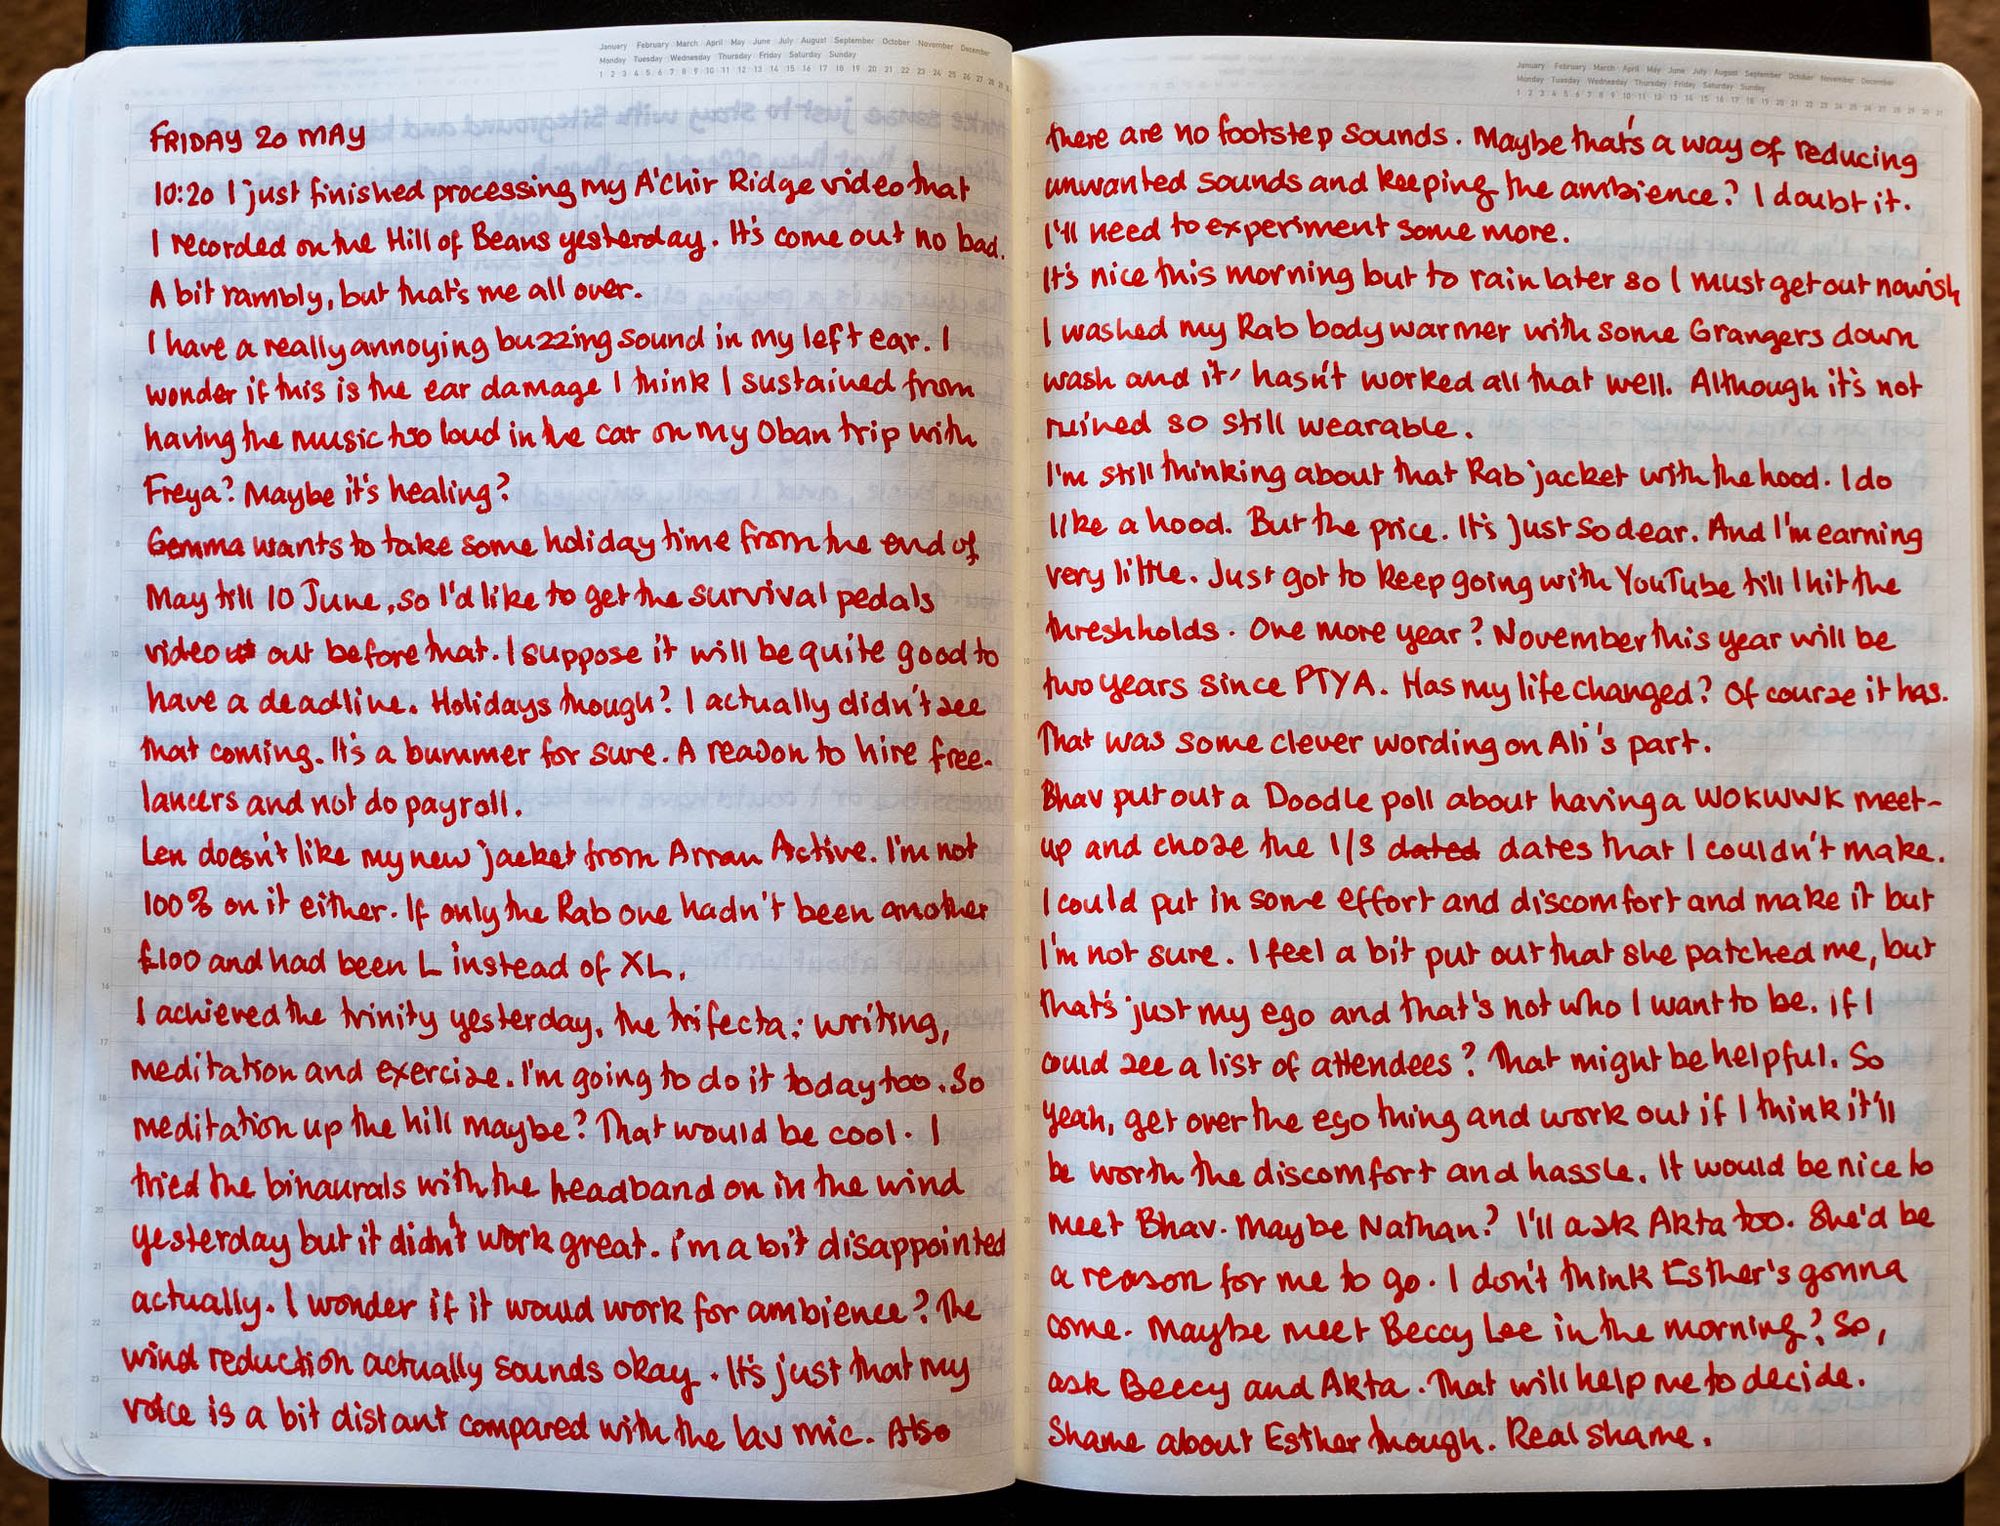 January February March April May June July August September October November December
Monday Tuesday Wednesday Thursday Friday Saturday Sunday
1 2 3 4 5 6 7 8 9 10 11 12 13 14 15 16 17 18 19 20 21 22 23 24 25 26 27 28 29
FRIDAY 20 MAY
10:20 I just finished processing my A'Chir Ridge video that
I recorded on the Hill of Beans yesterday. It's come out no bad.
A bit rambly, but that's me all over.
I have a really annoying buzzing sound in my left ear. I
wonder if this is the ear damage I think I sustained from
having the music too loud in the car on my Oban trip with
Freya? Maybe it's healing?
Gemma wants to take some holiday time from the end of
May till 10 June, so I'd like to get the survival pedals
video out before that. I suppose it will be quite good to
have a deadline. Holidays though? I actually didn't see
that coming. It's a bummer for sure. A reason to hire free-
lancers and not do payroll.
Len doesn't like my new jacket from Arran Active. I'm not
100% on it either. If only the Rab one hadn't been another
£100 and had been L instead of XL.
I achieved the trinity yesterday, the trifecta: writing,
meditation and exercise. I'm going to do it today too. So
meditation up the hill maybe? That would be cool. I
tried the binaurals with the headband on in the wind
yesterday but it didn't work great. I'm a bit disappointed
actually. I wonder if it would work for ambience? The
wind reduction actually sounds okay. It's just that my
voice is a bit distant compared with the lav mic. Also
January February March April May June July August September October November December
Monday Tuesday Wednesday Thursday Friday Saturday Sunday
1 2 3 4 5 6 7 8 9 10 11 12 13 14 15 16 17 18 19 20 21 22 23 24 25 26 27 28 29 30 31
there are no footstep sounds. Maybe that's a way of reducing
unwanted sounds and keeping the ambience? I doubt it.
I'll need to experiment some more.
It's nice this morning but to rain later so I must get out nowish
I washed my Rab body warmer with some Grangers down
wash and it hasn't worked all that well. Although it's not
ruined so still wearable.
I'm still thinking about that Rab jacket with the hood. I do
like a hood. But the price. It's just so dear. And I'm earning
very little. Just got to keep going with YouTube till I hit the
threshholds. One more year? November this year will be
two years since PTYA. Has my life changed? Of course it has.
That was some clever wording on Ali's part.
Bhav put out a Doodle poll about having a WOKWWK meet-
up and chose the 1/3 dated dates that I couldn't make.
I could put in some effort and discomfort and make it but
I'm not sure. I feel a bit put out that she patched me, but
that's just my ego and that's not who I want to be. If I
could see a list of attendees? That might be helpful. So
yeah, get over the ego thing and work out if I think it'll
be worth the discomfort and hassle. It would be nice to
meet Bhav. Maybe Nathan? I'll ask Akta too. She'd be
a reason for me to go. I don't think Esther's gonna
come. Maybe meet Beccy Lee in the morning? So,
ask Beccy and Akta. That will help me to decide.
Shame about Esther though. Real shame.